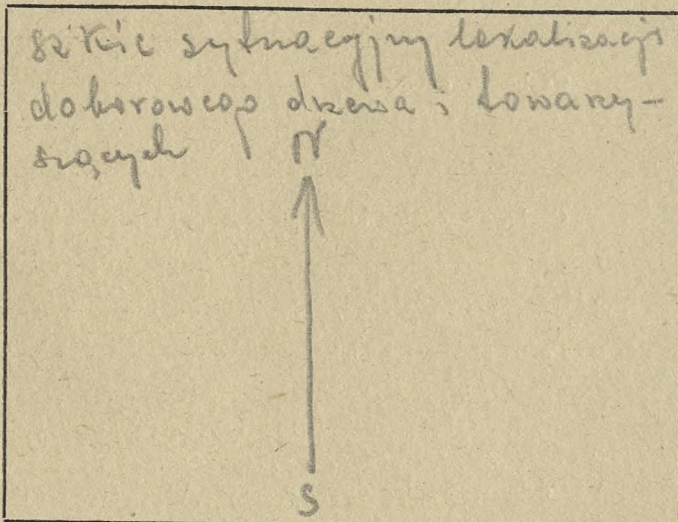 szkic sytuacyjny lokalizacji
doborowego drzewa i towarzy-
szących N
S